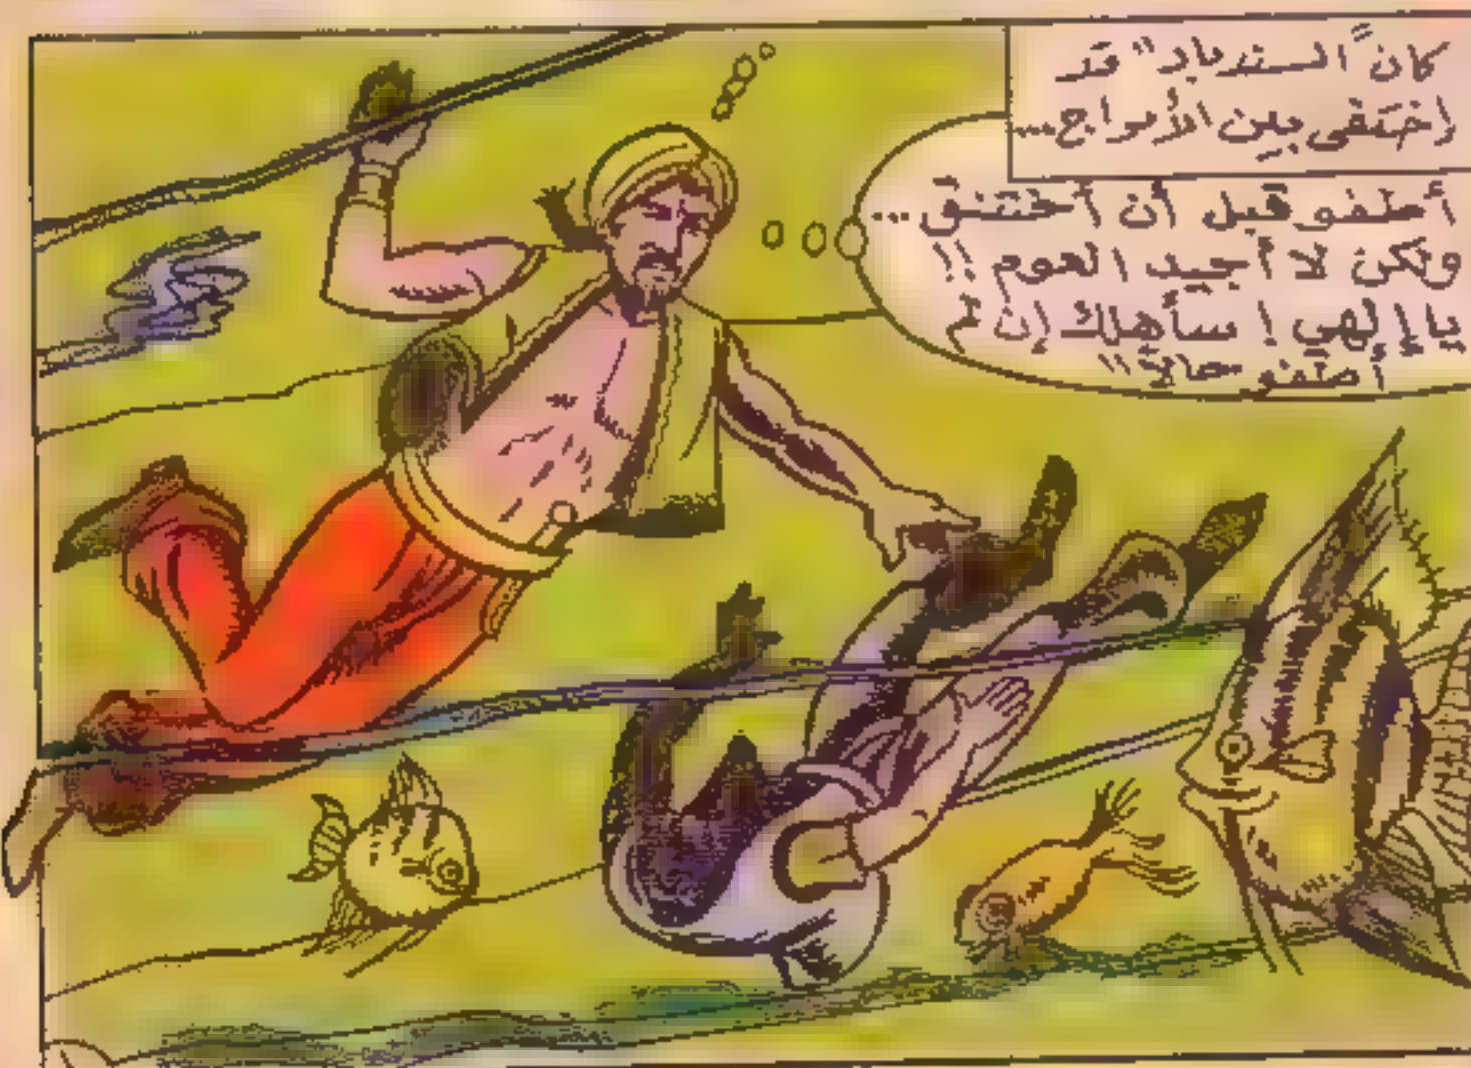 كان "السندباد" قد
إختفى بين الأمواج...
أطفو قبل أن أختنق...
ولكن لا أجيد العوم !!
يا إلهي ! سأهلك إن لم
أطفو حالاً !!